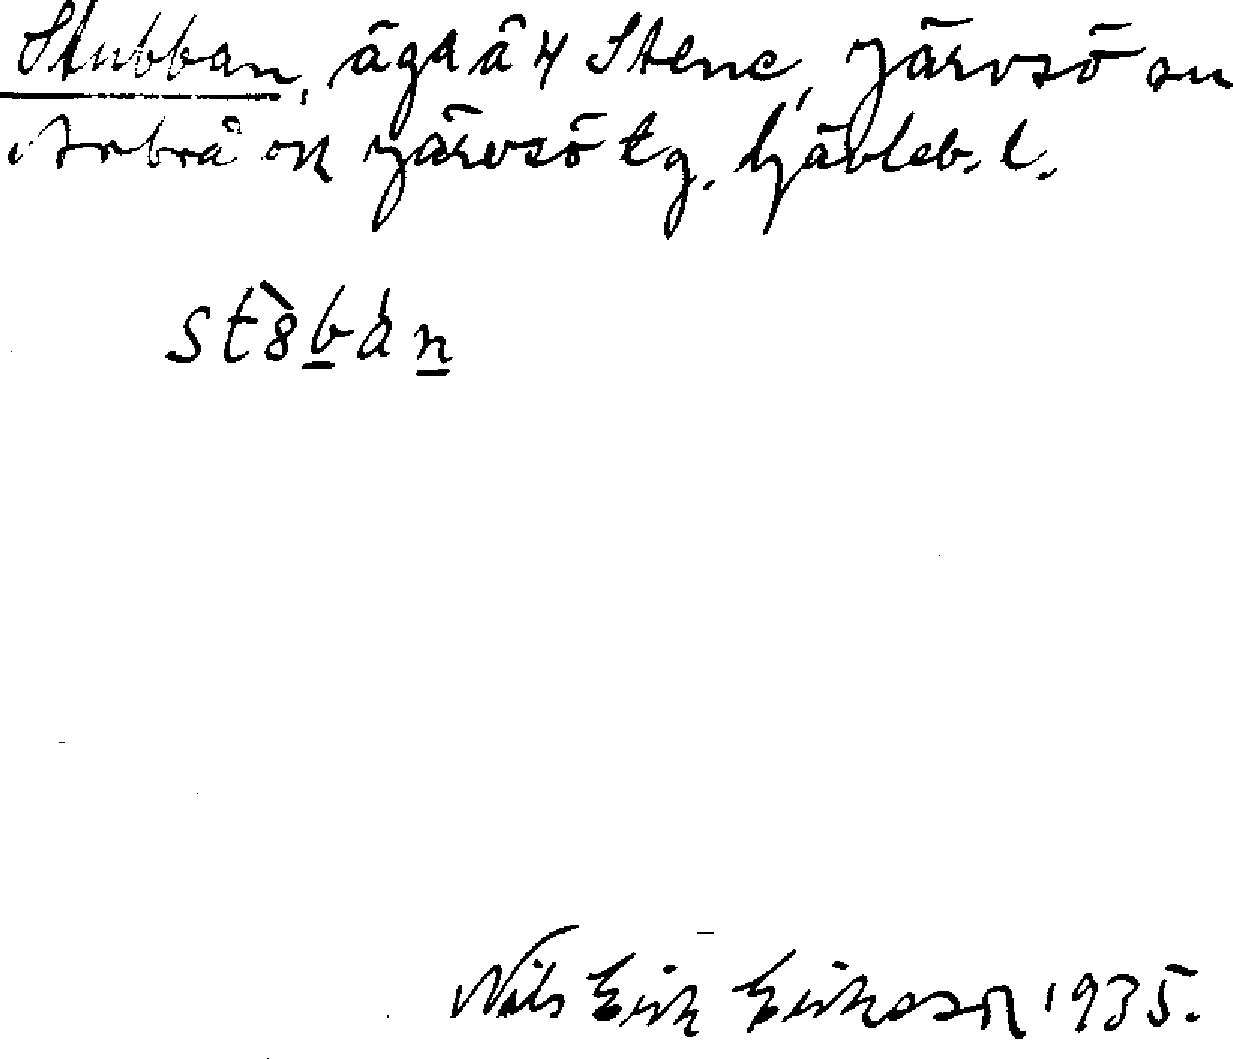 Stubban, äga å 4 Stene, Järvsö sn
Arbrå ok Järvsö tg. Gävleb. l.
Nils Erik Eriksson 1935.